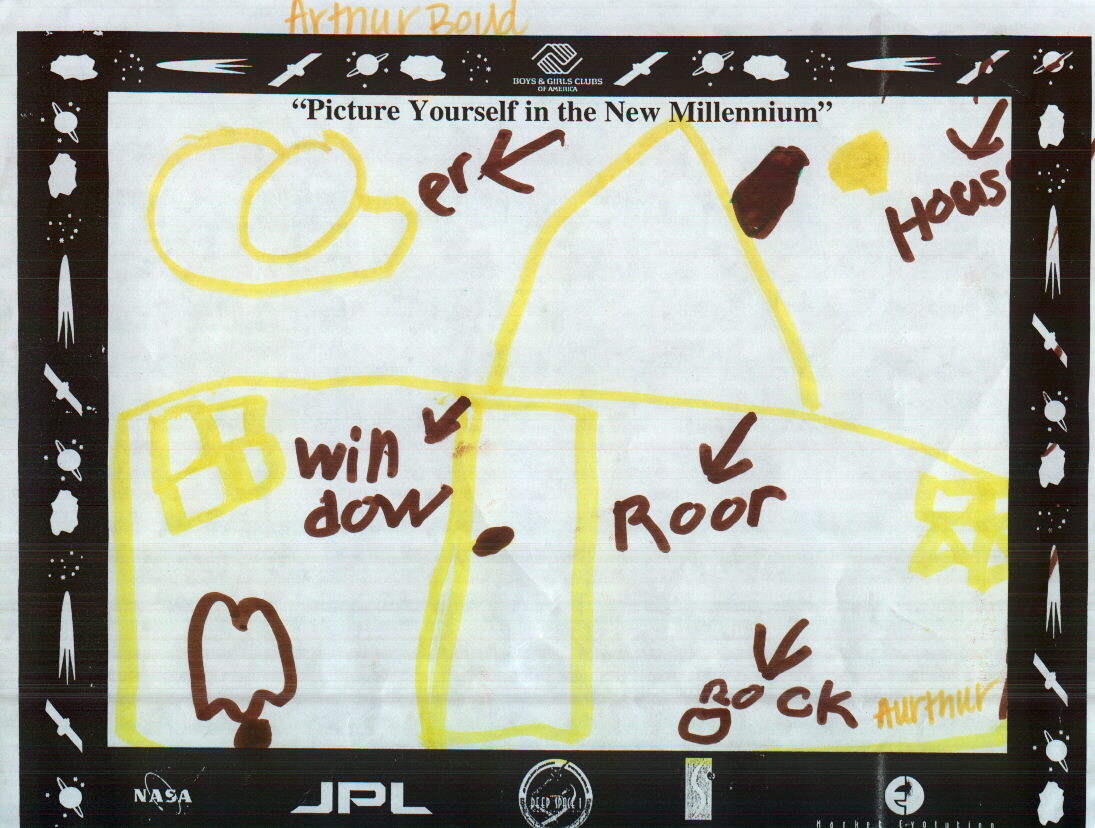 Arthur Boyd
BOYS & GIRLS CLUBS
OF AMERICA
“Picture Yourself in the New Millennium”
er
Hous
win
dow
Roor
ROCK
Aurthur
NASA
JPL
DEEP SPACE 1
Market Evolution